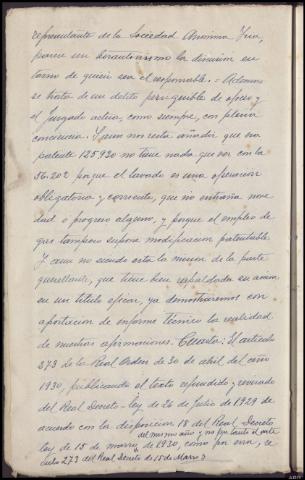 representante de la Sociedad Anonima Yria,
parece un bizantinismo la discusión en
torno de quién sea el responsable. = Ademas
se trata de un delito perseguible de oficio y
el Juzgado actúa, como siempre, con plena
conciencia. Y aun nos resta añadir que esa
patente 125.920 no tiene nada que ver con la
56.202 porque el lavado es una operación
obligatoria y corriente, que no entraña nove
dad o progreso alguno, y porque el empleo de
gas tampoco supone modificacion patentable.
Y aun no siendo esta la mision de la parte
querellante, que tiene bien respaldada su acción
en un título oficial, ya demostraremos con
aportacion de informe técnico la realidad
de nuestras afirmaciones. Cuarto: El artículo
273 de la Real Orden de 30 de abril del año
1930, publicando el texto refundido y revisado
del Real Decreto-ley de 26 de Julio de 1929 de
acuerdo con la disposicion 18 del Real Decreto
ley de 15 de marzo de 1930, como por error, se
del mismo año y no por tanto el arti
culo 273 del Real Decreto de 15 de Marzo